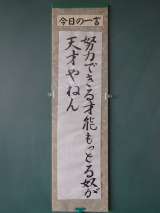 今日の一言
努力できる才能もっとる奴が
天才やねん